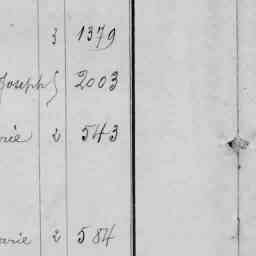 3 1379
Joseph } 2003
rie 2 543
arie 2 584